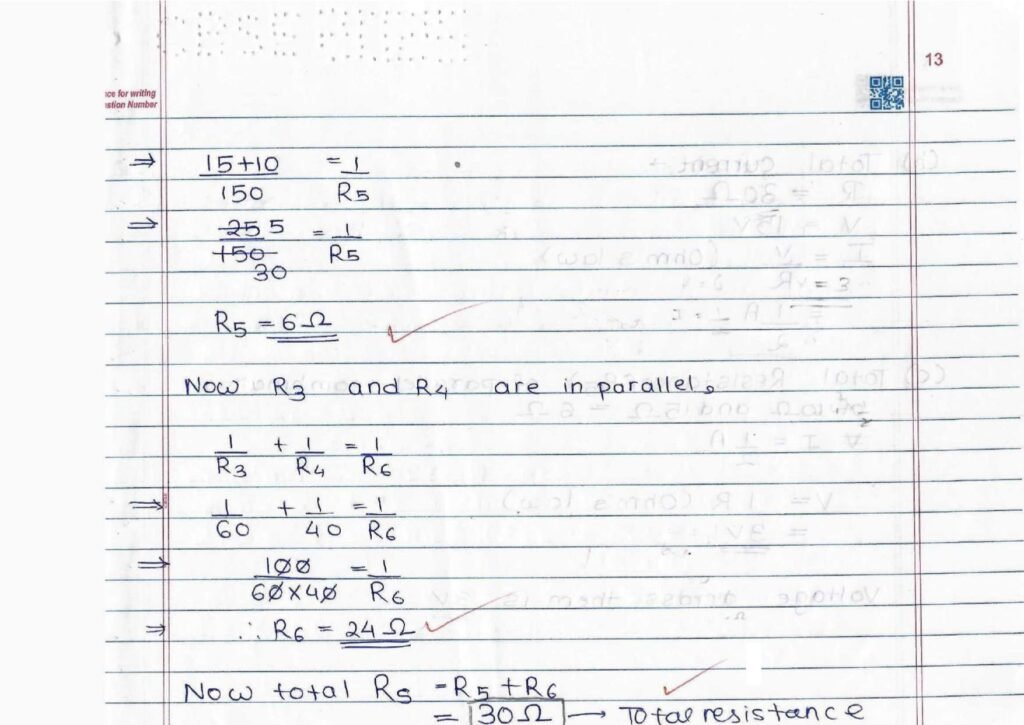 13
ce for writing
stion Number
⇒ 15+10/150 = 1/R5
⇒ 25 5/150 30 = 1/R5
R5 = 6Ω
Now R3 and R4 are in parallel,
1/R3 + 1/R4 = 1/R6
⇒ 1/60 + 1/40 = 1/R6
⇒ 100/60×40 = 1/R6
⇒ ∴ R6 = 24Ω
Now total Rs = R5 + R6
= 30Ω → Total resistance